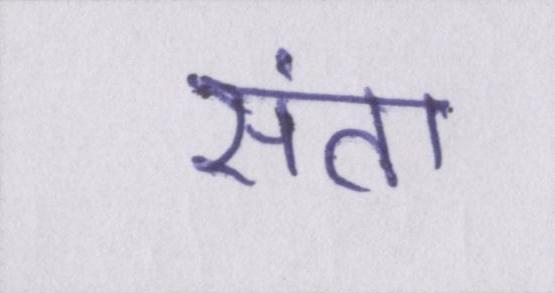 संता